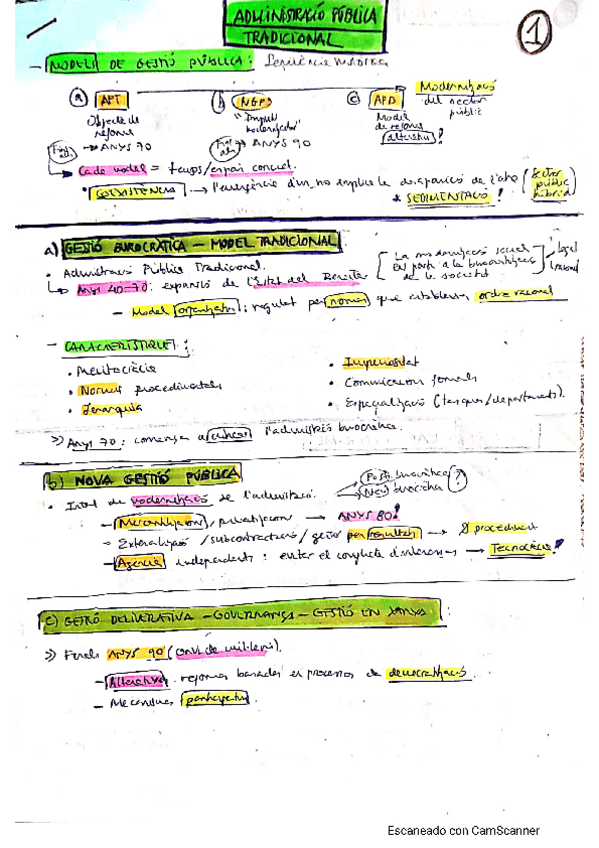 ADMINISTRACIÓ PÚBLICA
TRADICIONAL
1
- MODELS DE GESTIÓ PÚBLICA:
a) APT
b) NGP
c) APD
Modernització
del sector
públic
Objecte de
reforma
"Impuls
modernitzador"
Model
de reforma
alternatiu!
→ ANYS 70
→ ANYS 90
↳ Cada model = temps/espai concret.
• COEXISTÈNCIA → l'emergència d'un no implica la desaparició de l'altre
Sector
públic
híbrid
* SEDIMENTACIÓ!
a) GESTIÓ BUROCRÀTICA - MODEL TRADICIONAL
• Administració Pública Tradicional.
↳ Anys 40-70: expansió de l'Estat del Benestar
de la societat
legal
racional
- Model organitzatiu: regulat per normes que estableixen ordre racional
- CARACTERÍSTIQUES:
• Meritocràcia
• Normes procedimentals
• Jerarquia
• Impersonalitat
• Comunicacions formals
• Especialització (tasques/departaments).
>> Anys 70: comença a criticar l'administració burocràtica.
b) NOVA GESTIÓ PÚBLICA
• Intent de modernització de l'administració.
Post burocràtica
Neo burocràtica
?
- Mercantilització, privatització → ANYS 80!
- Externalització / subcontractació / gestió per resultats → procediment
- Agències independents: evitar el conflicte d'interessos → Tecnocràcia!
c) GESTIÓ DELIBERATIVA - GOVERNANÇA - GESTIÓ EN XARXA:
>> Finals ANYS 90 (canvi de mil·lenni).
- Alternatives reformes basades en processos de democratització.
- Mecanismes participatius.
Escaneado con CamScanner